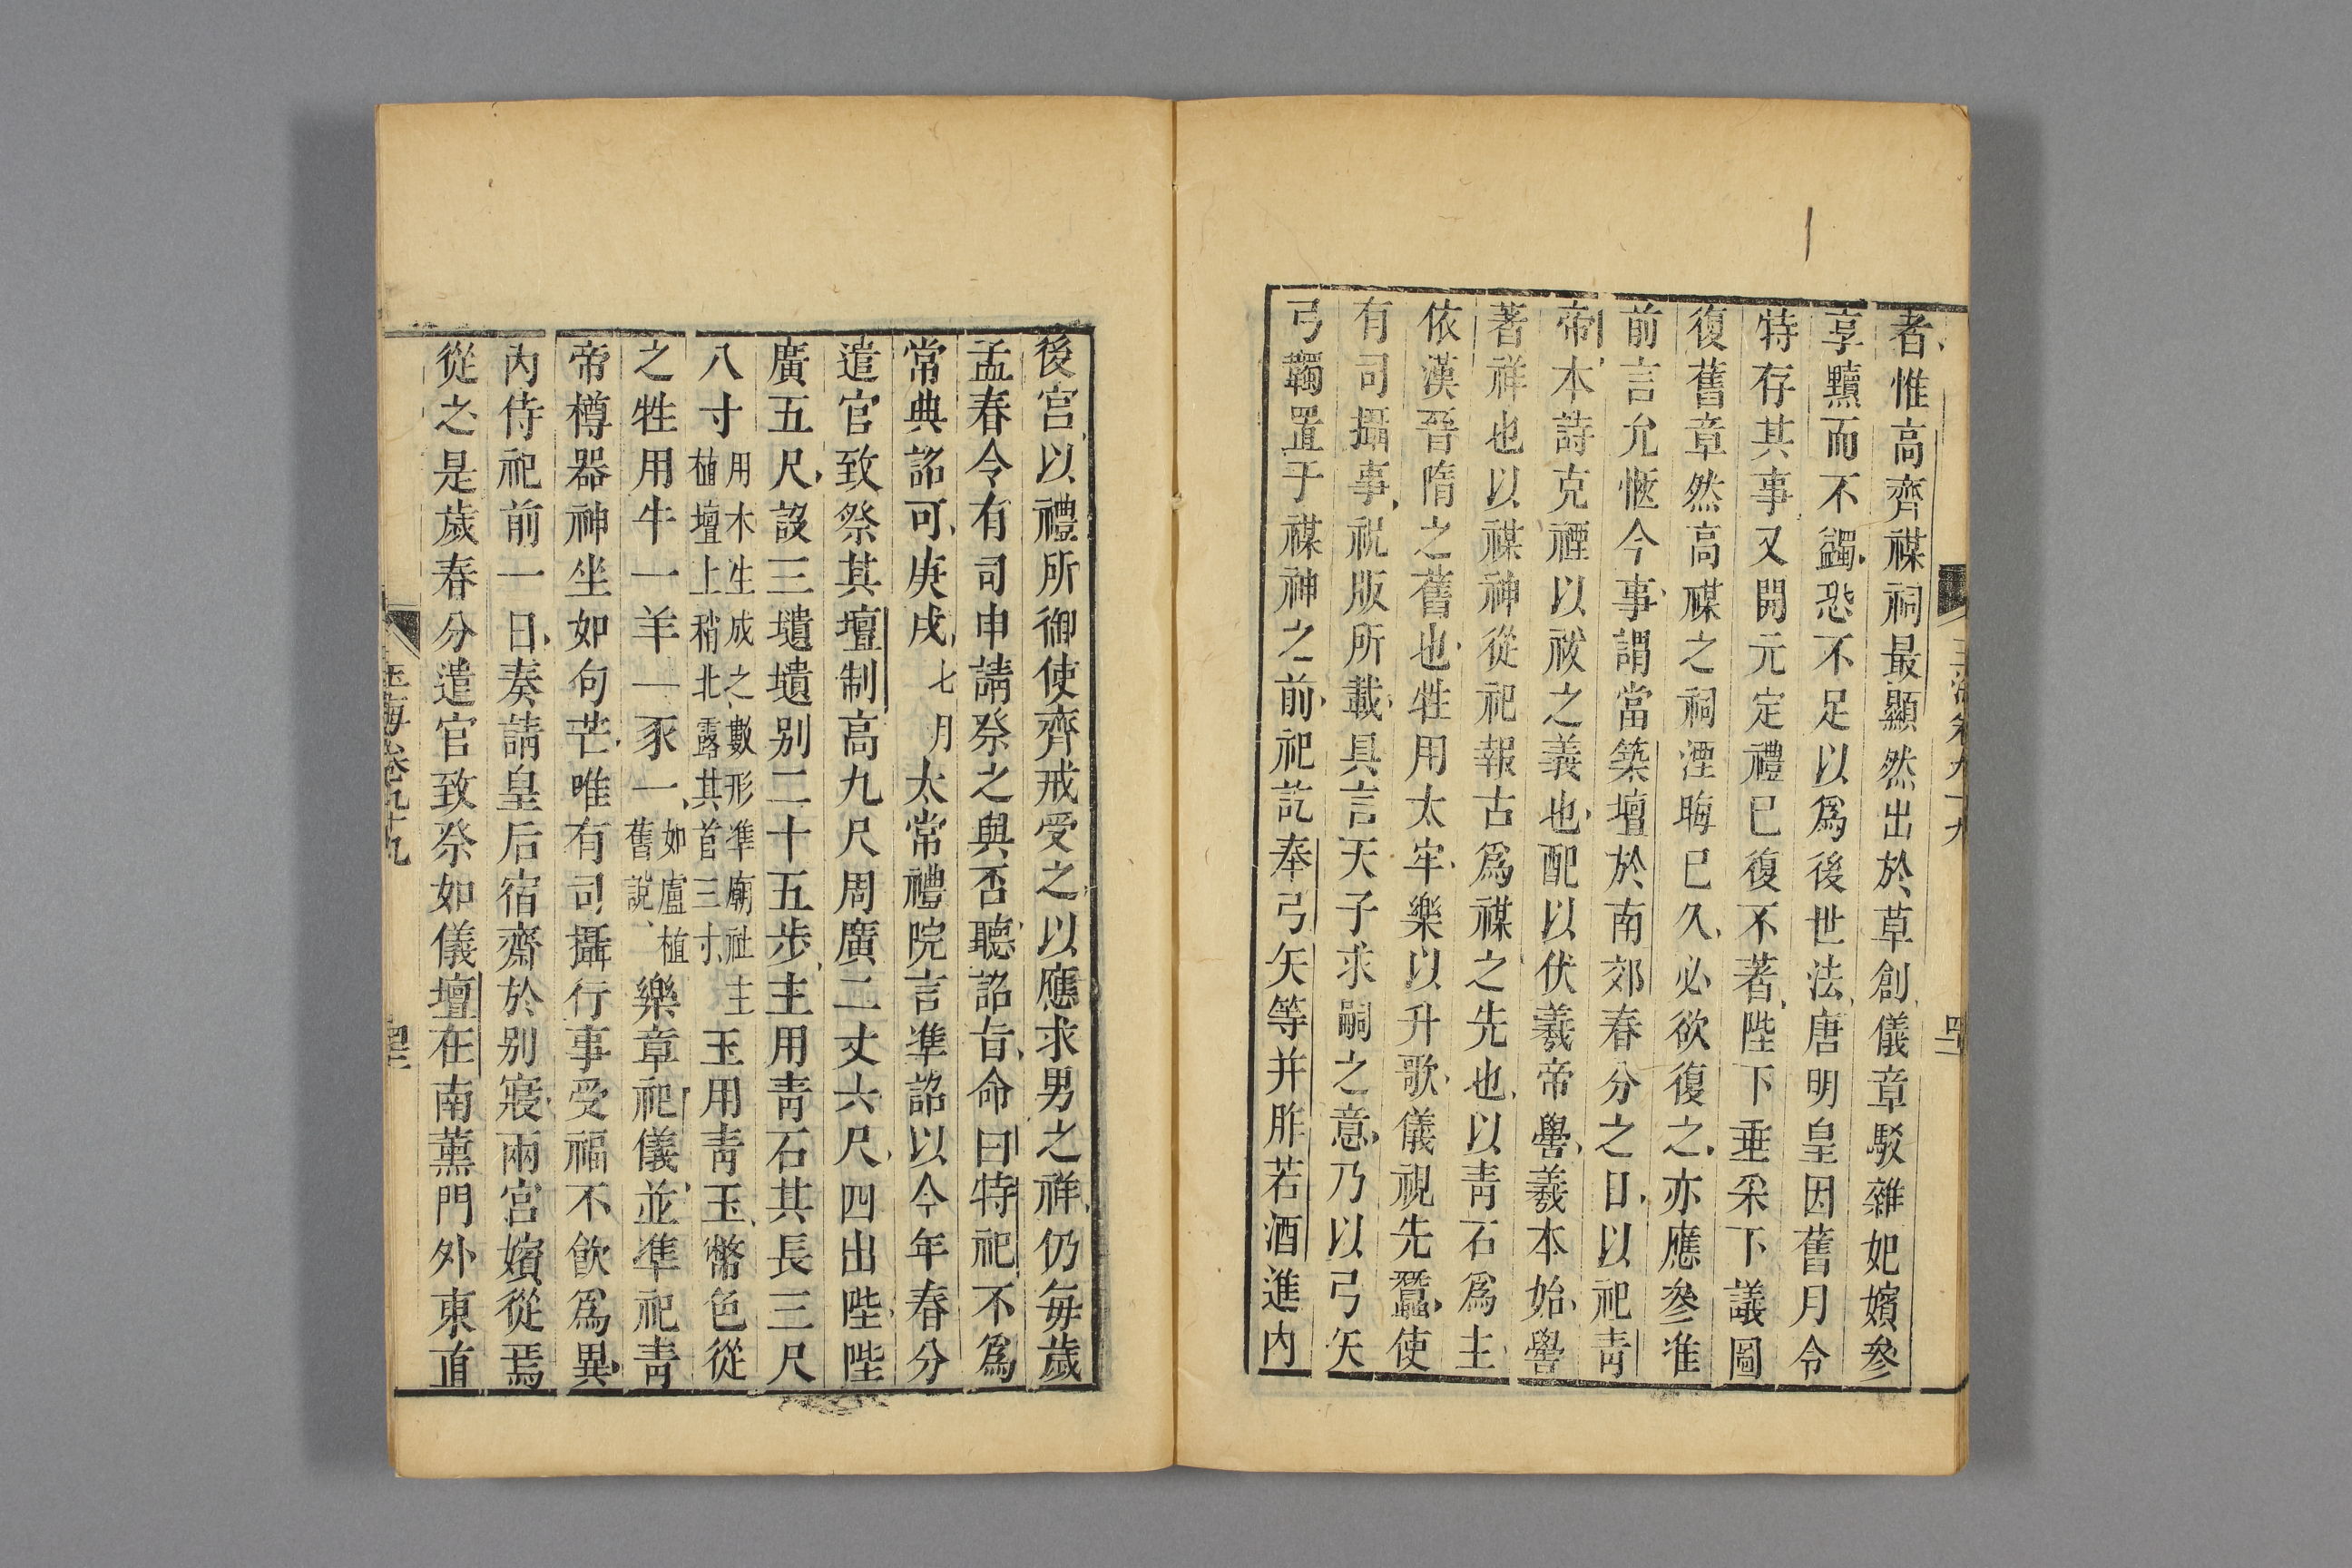 者惟高齊禖祠最顯然出於草創儀章駁雜妃嬪參
享黷而不蠲恐不足以爲後世法唐明皇因舊月令
特存其事又開元定禮已復不著陛下垂采下議圖
復舊章然高禖之祠湮晦已久必欲復之亦應參准
前言允愜今事謂當築壇於南郊春分之日以祀青
帝本詩克禋以祓之義也配以伏羲帝嚳羲本始嚳
著祥也以禖神從祀報古爲禖之先也以青石爲主
依漢晉隋之舊也牲用太牢樂以升歌儀視先蠶使
有司攝事祝版所載具言天子求嗣之意乃以弓矢
弓韣置于禖神之前祀訖奉弓矢等并胙若酒進內
後宮以禮所御使齊戒受之以應求男之祥仍每歲
孟春令有司申請祭之與否聽詔旨命曰特祀不爲
常典詔可庚戌七月太常禮院言準詔以今年春分
遣官致祭其壇制高九尺周廣二丈六尺四出陛陛
廣五尺設三壝壝别二十五步主用青石其長三尺
八寸用木生成之數形準廟社主植壇上稍北露其首三寸玉用青玉幣色從
之牲用牛一羊一豕一如盧植舊說樂章祀儀並準祀青
帝樽器神坐如句芒唯有司攝行事受福不飲爲異
內侍祀前一日奏請皇后宿齋於别寢兩宮嬪從焉
從之是歲春分遣官致祭如儀壇在南薰門外東直
玉海卷九十九